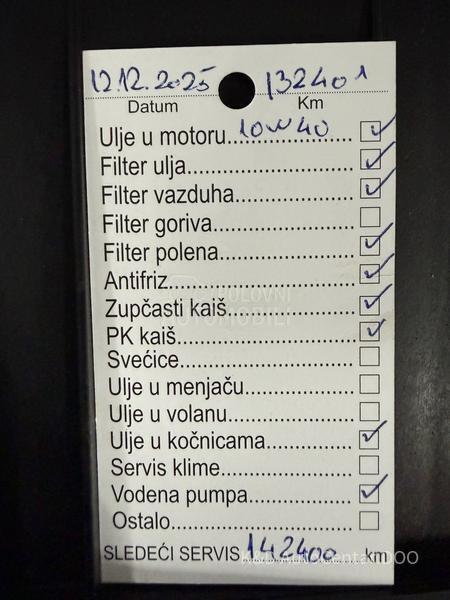 12.12.2025 132401
Datum Km
Ulje u motoru 10W40 ✓
Filter ulja ✓
Filter vazduha ✓
Filter goriva
Filter polena ✓
Antifriz ✓
Zupčasti kaiš ✓
PK kaiš ✓
Svećice
Ulje u menjaču
Ulje u volanu
Ulje u kočnicama ✓
Servis klime
Vodena pumpa ✓
Ostalo
SLEDEĆI SERVIS 142400 km
POLOVNI
AUTOMOBILI
DOO